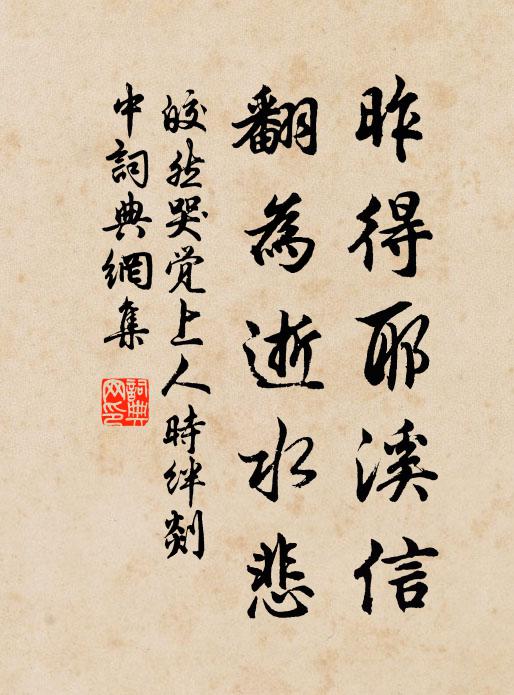 昨得耶溪信
翻為逝水悲
皎然哭覚上人時绊剡
中詞典網集
詞典
网印